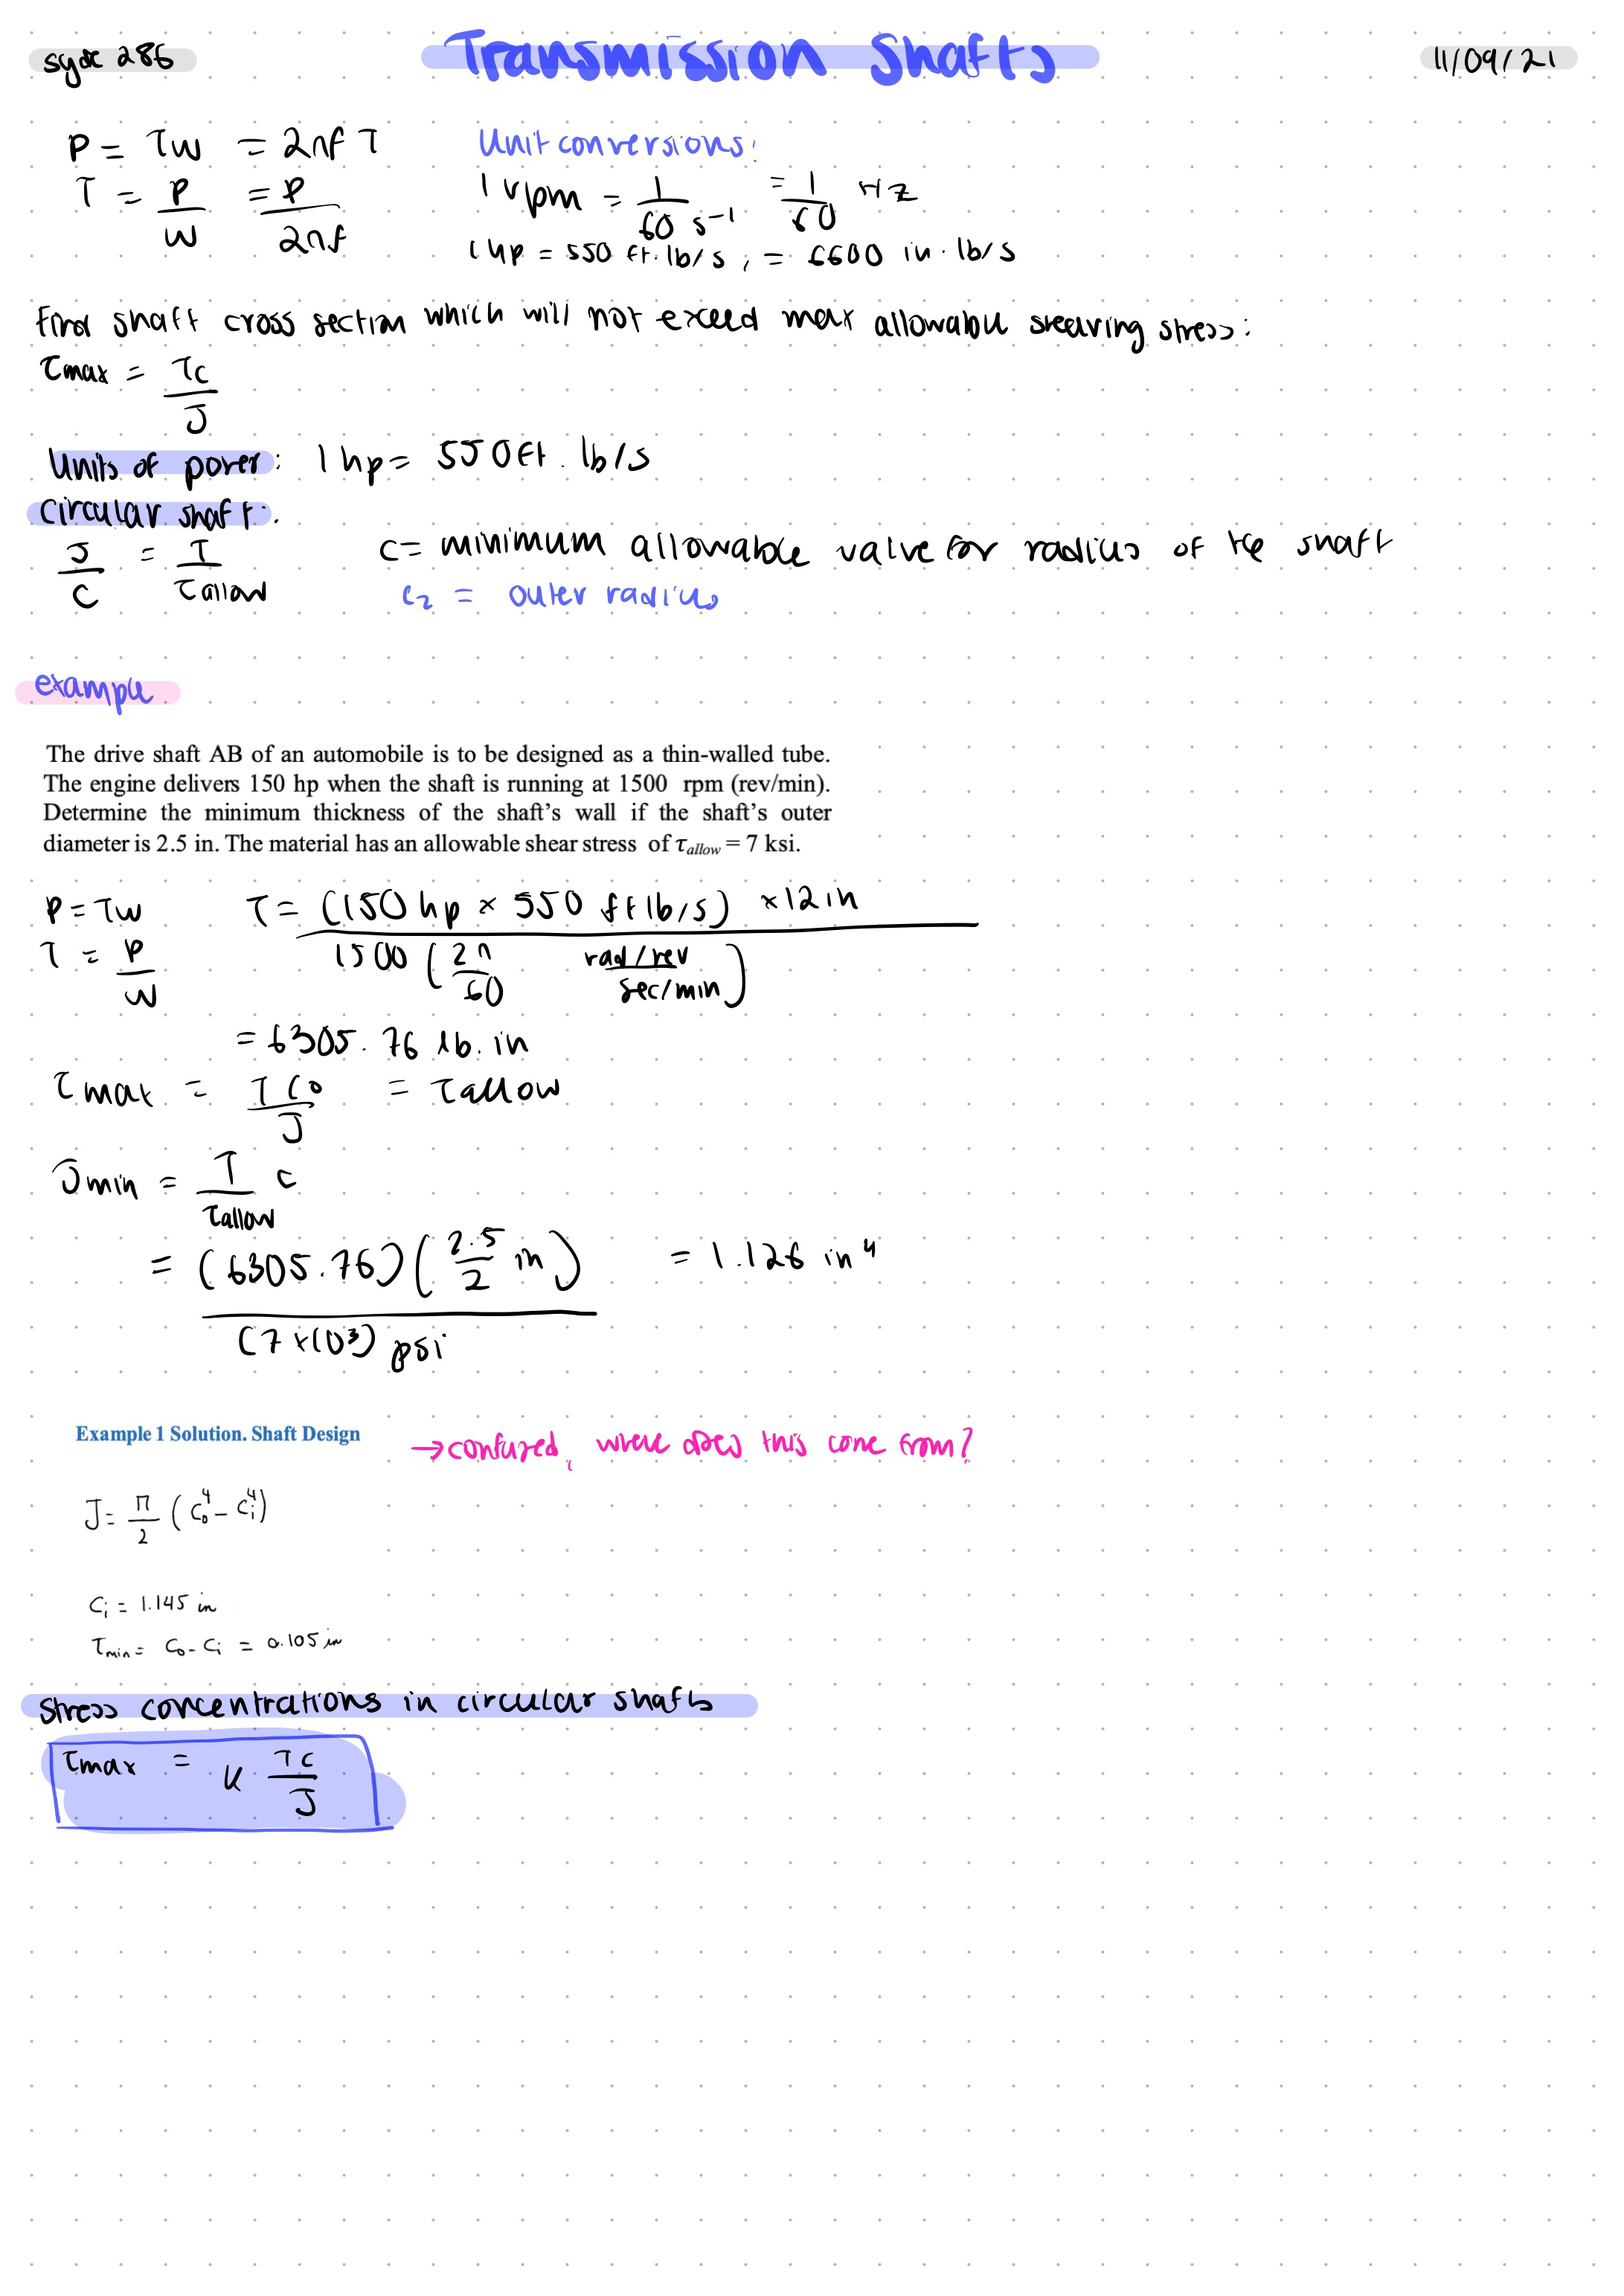 syde 286
Transmission Shafts
11/09/21
P = Tω = 2πf T
T = P/ω = P/2πf
Unit conversions:
1 rpm = 1/60 s⁻¹ = 1/60 Hz
1 hp = 550 ft.lb/s, = 6600 in.lb/s
Find shaft cross section which will not exceed max allowable shearing stress:
τmax = Tc/J
Units of power: 1 hp = 550 ft.lb/s
Circular shaft:
J/c = T/τallow
c = minimum allowable value for radius of the shaft
c₂ = outer radius
example
The drive shaft AB of an automobile is to be designed as a thin-walled tube.
The engine delivers 150 hp when the shaft is running at 1500 rpm (rev/min).
Determine the minimum thickness of the shaft's wall if the shaft's outer
diameter is 2.5 in. The material has an allowable shear stress of τallow = 7 ksi.
P = Tω
T = P/ω
T = (150 hp × 550 ft lb/s) × 12 in / 1500 (2π/60 rad/rev / sec/min)
= 6305.76 lb.in
τmax = T Co/J = τallow
Jmin = T/τallow c
= (6305.76)(2.5/2 in) / (7×10³) psi = 1.126 in⁴
Example 1 Solution. Shaft Design
→ confused, where does this come from?
J = π/2 (Co⁴ - Ci⁴)
Ci = 1.145 in
Tmin = Co - Ci = 0.105 in
Stress concentrations in circular shafts
τmax = K Tc/J